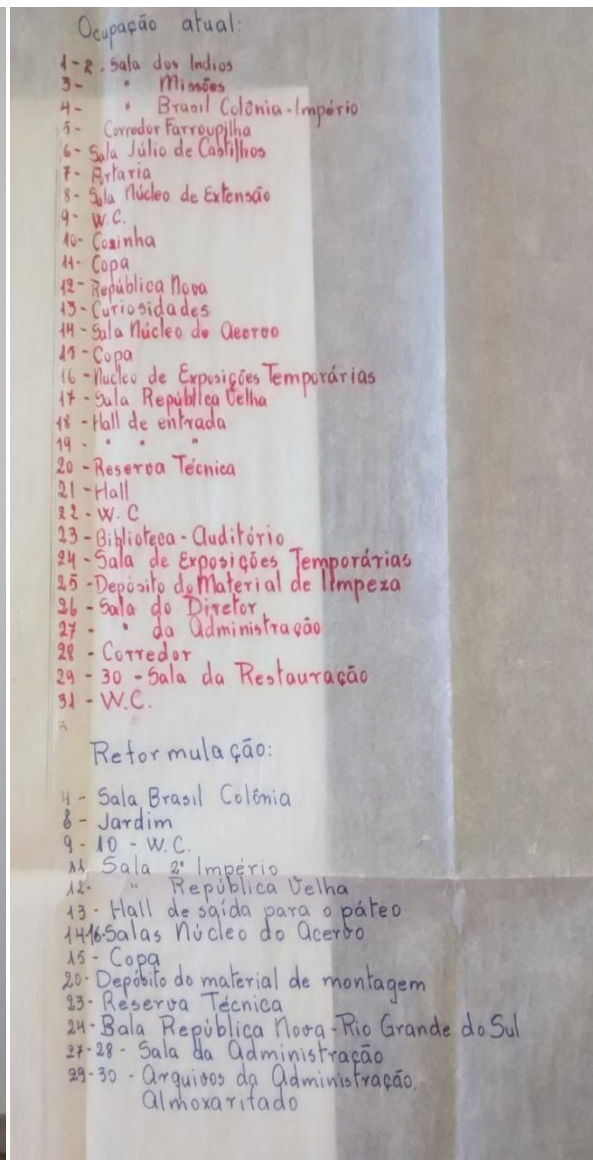 Ocupação atual:
1-2. Sala dos Indios
3- " Missões
4- " Brasil Colônia-Império
5- Corredor Farroupilha
6- Sala Júlio de Castilhos
7- Portaria
8- Sala Núcleo de Extensão
9- W.C.
10- Cozinha
11- Copa
12- República Nova
13- Curiosidades
14- Sala Núcleo do Acervo
15- Copa
16- Nucleo de Exposições Temporárias
17- Sala República Velha
18- Hall de entrada
19- " " "
20- Reserva Técnica
21- Hall
22- W.C
23- Biblioteca-Auditório
24- Sala de Exposições Temporárias
25- Depósito do Material de limpeza
26- Sala do Diretor
27- " da Administração
28- Corredor
29-30- Sala da Restauração
31- W.C.
Reformulação:
4- Sala Brasil Colônia
8- Jardim
9-10- W.C.
11 Sala 2º Império
12- " República Velha
13- Hall de saída para o páteo
14-16-Salas Núcleo do Acervo
15- Copa
20- Depósito do material de montagem
23- Reserva Técnica
24- Sala República Nova-Rio Grande do Sul
27-28- Sala da Administração
29-30- Arquivos da Administração.
Almoxarifado